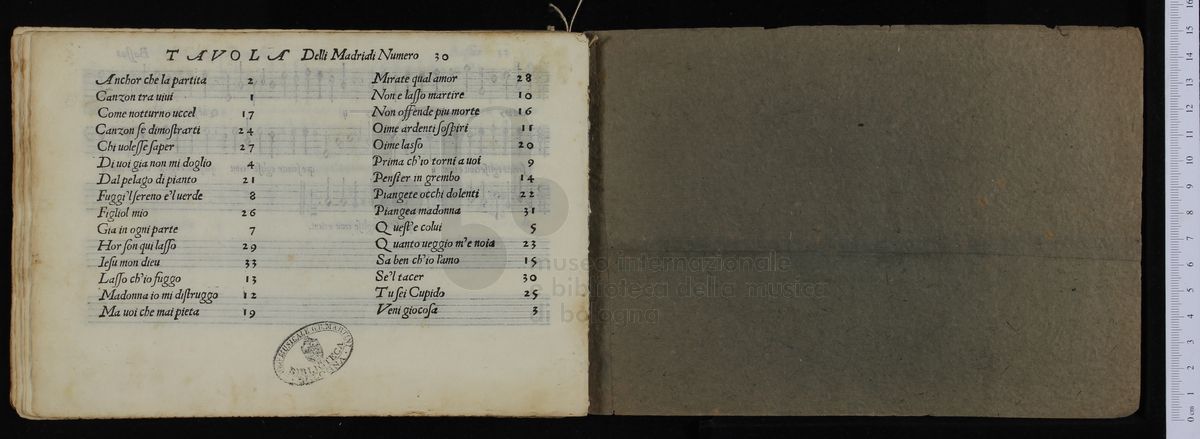 TAVOLA Delli Madriali Numero 30
Anchor che la partita 2
Canzon tra uiui 1
Come notturno uccel 17
Canzon ſe dimoſtrarti 24
Chi uoleſſe ſaper 27
Di uoi gia non mi doglio 4
Dal pelago di pianto 21
Fuggi'l ſereno e'l uerde 8
Figliol mio 26
Gia in ogni parte 7
Hor ſon qui laſſo 29
Ieſu mon dieu 33
Laſſo ch'io fuggo 13
Madonna io mi diſtruggo 12
Ma uoi che mai pieta 19
Mirate qual amor 28
Non e laſſo martire 10
Non offende piu morte 16
Oime ardenti ſoſpiri 11
Oime laſſo 20
Prima ch'io torni a uoi 9
Penſier in grembo 14
Piangete occhi dolenti 22
Piangea madonna 31
Queſt'e colui 5
Quanto ueggio m'e noia 23
Sa ben ch'io l'amo 15
Se'l tacer 30
Tu ſei Cupido 25
Veni giocoſa 3
MUSICALE G.B. MARTINI
BIBLIOTECA
BOLOGNA
museo internazionale
e biblioteca della musica
di bologna
0 cm 1 2 3 4 5 6 7 8 9 10 11 12 13 14 15 16